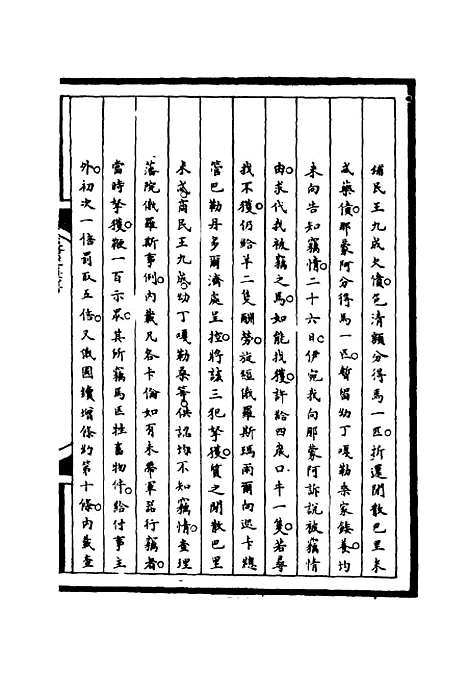 埔民王九成欠債。色清額分得馬一匹。折還閒散巴里未
成藥債。那蒙阿分得馬一匹。暫留幼丁嘎勒桑家餧養。均
未向告知竊情。二十六日。伊宛我向那蒙阿訴說被竊情
由。求代我被竊之馬。如能找獲。許給四歲口牛一隻。若尋
找不獲。仍給羊二隻酬勞。旋經俄羅斯瑪雨爾向巡卡總
管巴勒丹多爾濟處呈控。將該三犯拏獲。質之閒散巴里
未成。商民王九成。幼丁嘎勒桑等。供認均不知竊情。查理
藩院俄羅斯事例。內載凡各卡倫如有未帶軍器行竊者。
當時拏獲。鞭一百示眾。其所竊馬匹牲畜物件。給付事主
外。初次一倍罰取五倍。又俄國續增條約第十條。內載查